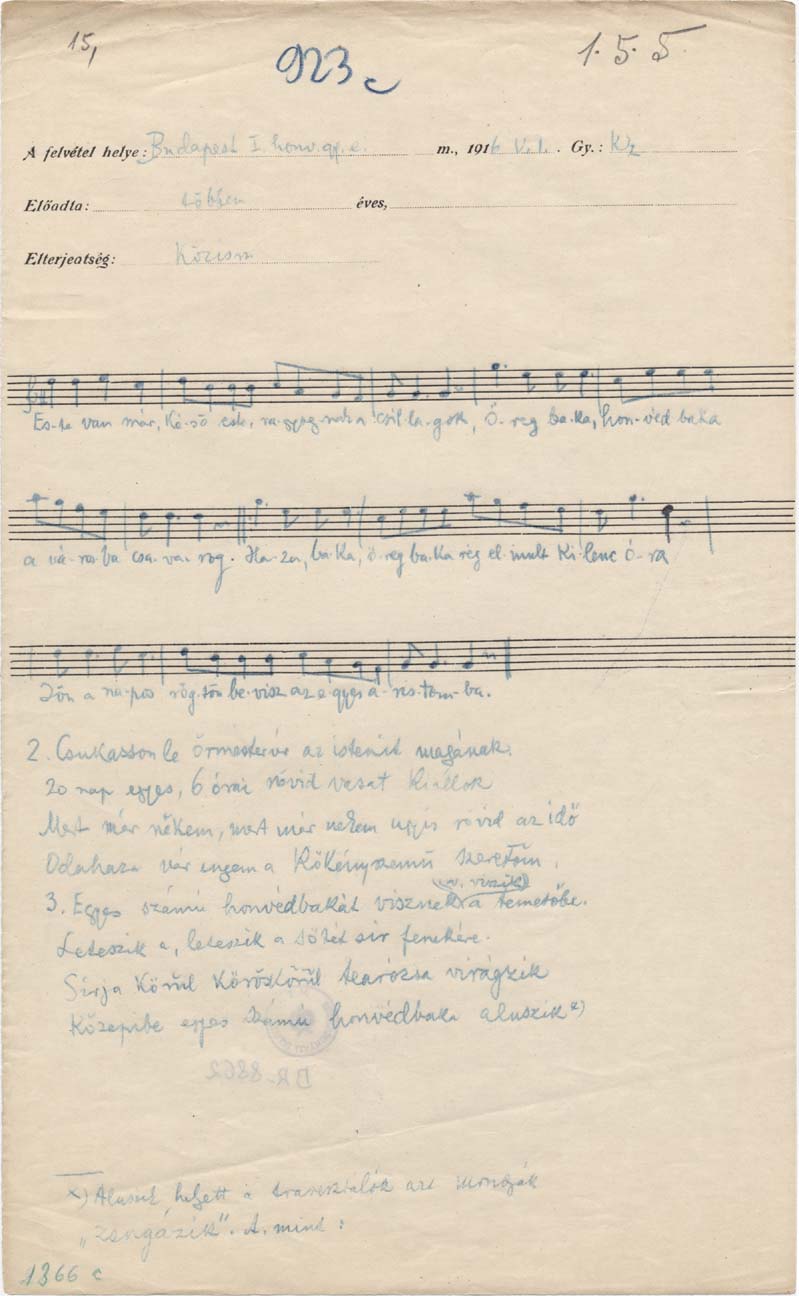 15,
923 c
1.5.5
A felvétel helye: Budapest I. honv. gy. e. m., 1916 V.1. Gy.: Kz
Előadta: többen éves,
Elterjeatség: Közism
Es-te van már, ké-ső es-te, ra-gyog-nak a csil-la-gok, Ö-reg ba-ka, hon-véd baka
a vá-ros-ba csa-va-rog. Ha-za, ba-ka, ö-reg ba-ka rég el-mult ki-lenc ó-ra
Jön a na-pos rög-tön be-visz az e-gyes á-ris-tom-ba.
2. Csukasson le őrmesterúr az istenit magának.
20 nap egyes, 6 órai rövid vasat kiállok
Mert már nékem, mert már nekem ugyis rövid az idő
Odahaza vár engem a kökényszemű szeretőm.
(v. viszik)
3. Egyes számú honvédbakát visznek a temetőbe.
Leteszik a, leteszik a sötét sir fenekére.
Sírja körül köröskörül tearózsa virágzik
Közepibe egyes számú honvédbaka aluszik x)
DR-8862
x) Aluszik helyett a azt mondják
"zengázik". A. mind:
1366 c